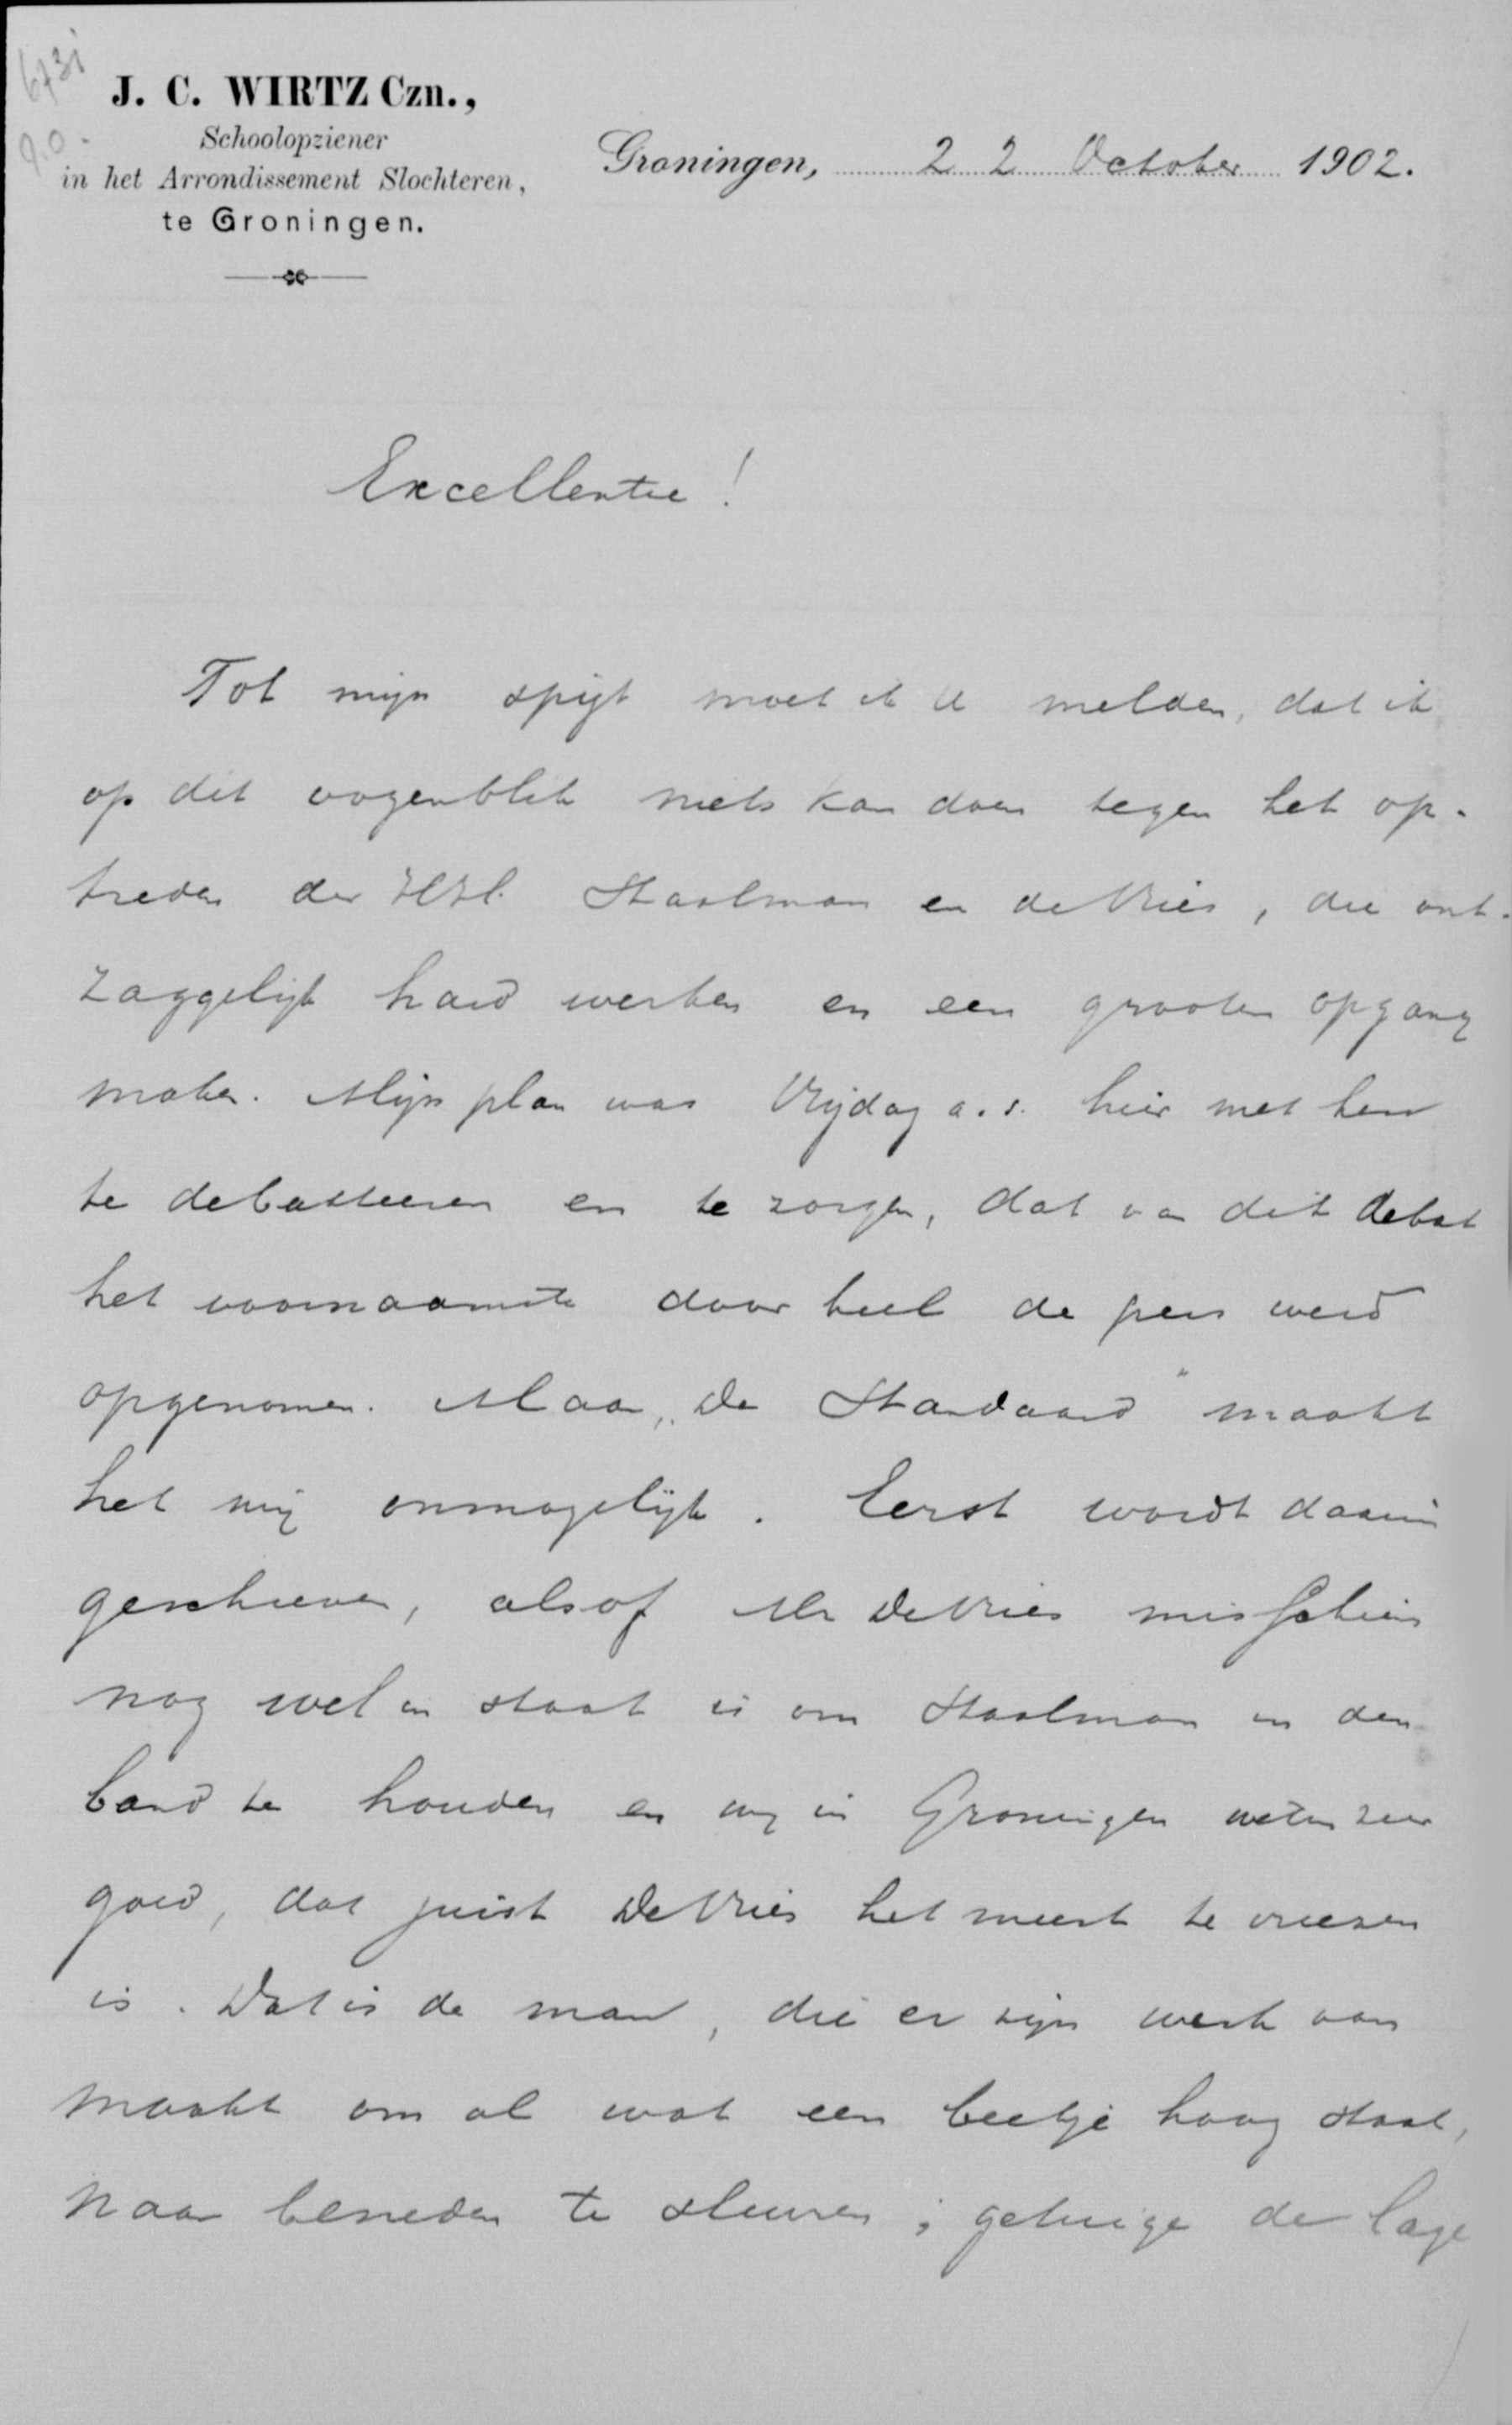 6731
J. C. WIRTZ Czn.,
Schoolopziener
in het Arrondissement Slochteren,
te Groningen.
Groningen, 22 October 1902.
Excellentie!
Tot mijn spijt moet ik U melden, dat ik
op dit oogenblik niets kan doen tegen het op-
treden der HH. Staalman en de Vries, die ont-
zaggelijk hard werken en een grooten opgang
maken. Mijn plan was Vrijdag a.s. hier met hen
te debatteeren en te zorgen, dat van dit debat
het voornaamste door heel de pers werd
opgenomen. Maar „De Standaard" maakt
het mij onmogelijk. Eerst wordt daarin
geschreven, alsof Mr De Vries misschien
nog wel in staat is om Staalman in den
band te houden en wij in Groningen weten zeer
goed, dat juist De Vries het meest te vreezen
is. Dat is de man, die er zijn werk van
maakt om al wat een beetje hoog staat,
naar beneden te sleuren; getuige de lage